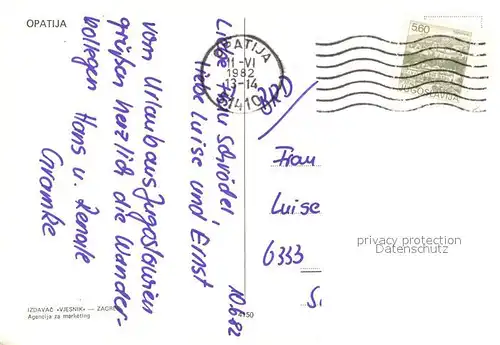 OPATIJA
10.6.82
Liebe Frau Schrödel,
liebe Luise und Ernst
vom Urlaub aus Jugoslawien
grüßen herzlich die Wander-
kollegen Hans u. Renate
Gramke
OPATIJA
11-VI
1982
13-14
BRD
5.60
JUGOSLAVIJA
Frau
Luise
6333
S.
privacy protection
Datenschutz
IZDAVAČ «VJESNIK» — ZAGR
Agencija za marketing
4150